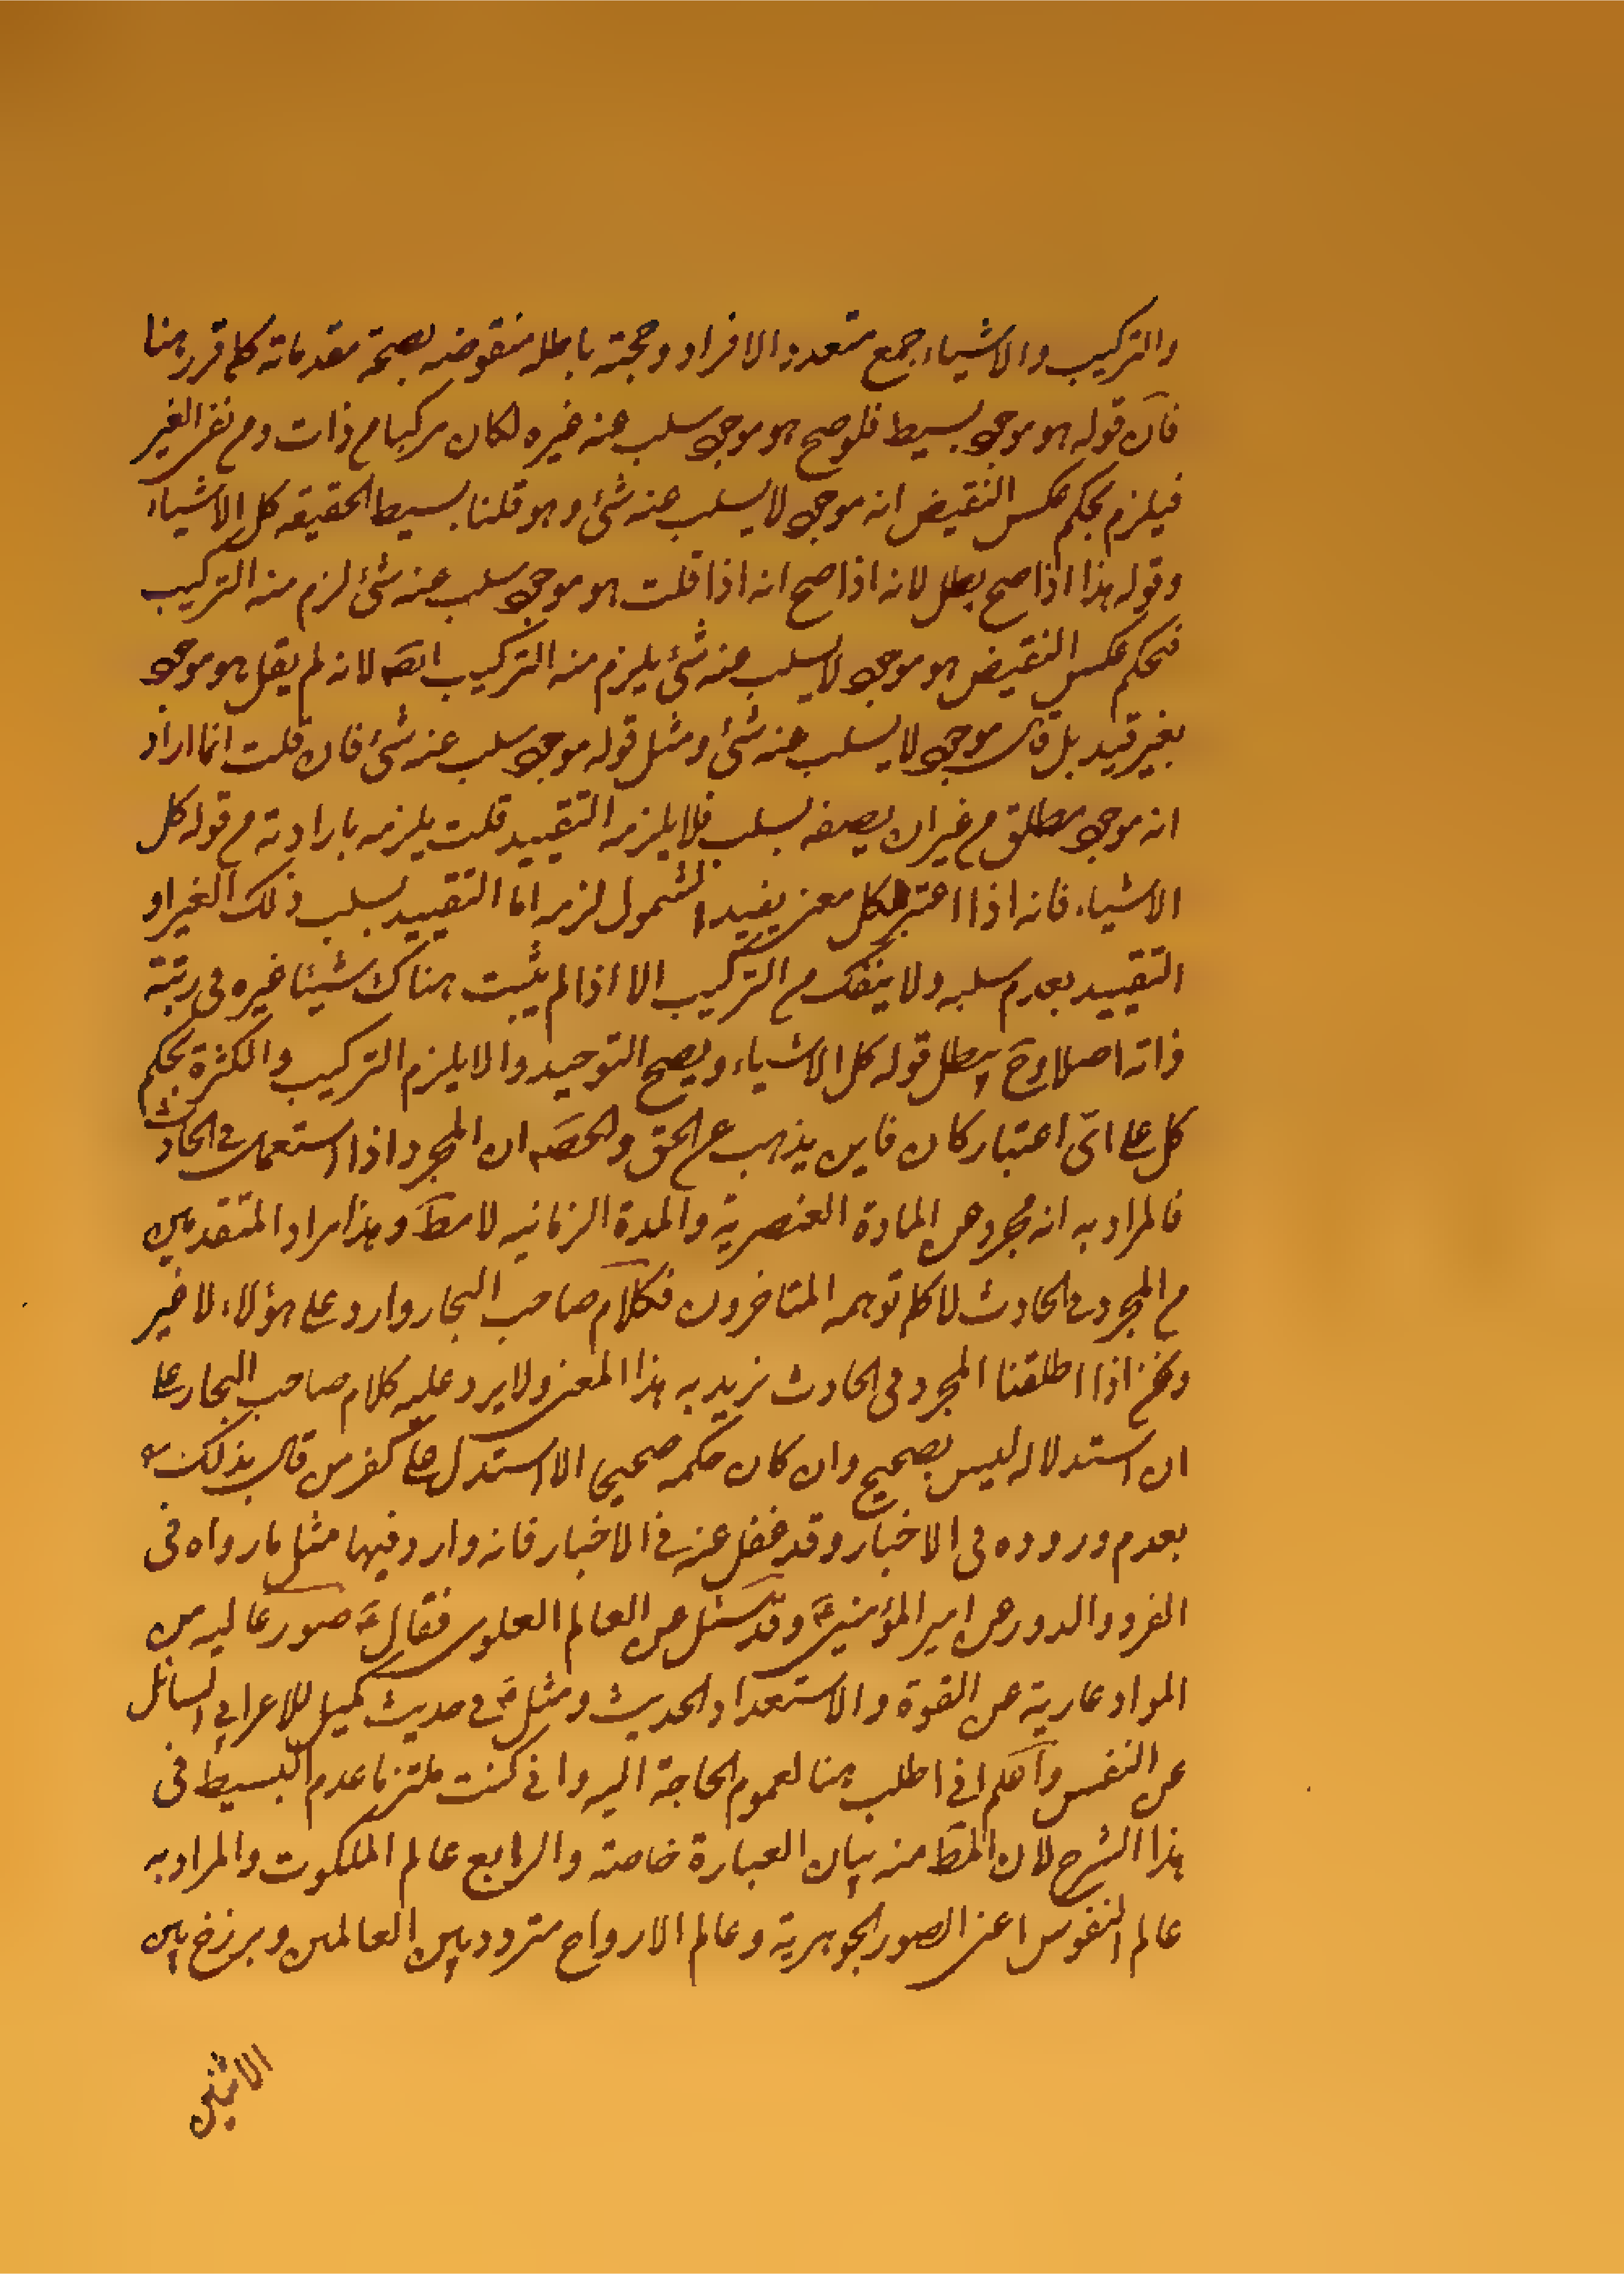 والتركيب والاشياء جمع متعدد الافراد وحجته باطله منقوضه بصحة مقدماته كما قرر هنا
فان قوله هو موجود بسيط فلو صح هو موجود سلب عنه غيره لكان مركبا من ذات ومن نفى الغير
فيلزم بحكم عكس النقيض انه موجود لا يسلب عنه شئ وهو قلنا بسيط الحقيقه كل الاشياء
وقوله هذا اذا صح بطل لانه اذا صح انه اذا قلت هو موجود سلب عنه شئ لزم منه التركيب
فبحكم عكس النقيض هو موجود لا يسلب عنه شئ يلزم منه التركيب ايضه لانه لم يقل هو موجود
بغير قيد بل قال موجود لا يسلب عنه شئ ومثل قوله موجود سلب عنه شئ فان قلت انما اراد
انه موجود مطلق من غير ان يصفه بسلب فلا يلزمه التقييد قلت يلزمه بارادته من قوله كل
الاشياء فانه اذا اعتبر لكل معنى يفيد الشمول لزمه اما التقييد بسلب ذلك الغير او
التقييد بعدم سلبه ولا ينفك من التركيب الا اذا لم يثبت هناك شيئا غيره فى رتبة
ذاته اصلا وح يبطل قوله كل الاشياء ويصح التوحيد والا يلزم التركيب والكثرة بحكم
كل على اىّ اعتبار كان فاين يذهب عن الحق والحصه ان المجرد اذا استعمل فى الحادث
فالمراد به انه مجرد عن المادة العنصرية والمدة الزمانيه لا مط وهذا مراد المتقدمين
من المجرد فى الحادث لا كما توهمه المتاخرون فكلام صاحب البحار وارد على هؤلاء لا غير
ونحن اذا اطلقنا المجرد فى الحادث نريد به هذا المعنى ولا يرد عليه كلام صاحب البحار على
ان استدلاله ليس بصحيح وان كان حكمه صحيحا الا استدل على كفر من قال بذلك
بعدم وروده فى الاخبار وقد غفل عنه فى الاخبار فانه وارد فيها مثل ما رواه فى
الغرر والدرر عن امير المؤمنين ع وقد سئل عن العالم العلوى فقال ع صور عاليه من
المواد عارية عن القوة والاستعداد الحديث ومثله فى حديث كميل للاعرابي السائل
عن النفس واعلم انى اطلب هنا لعموم الحاجة اليه وانى كنت ملتزما عدم البسيط فى
هذا الشرح لان المط منه بيان العبارة خاصة والرابع عالم الملكوت والمراد به
عالم النفوس اعنى الصور الجوهرية وعالم الارواح متردد بين العالمين وبرزخ بين
الاثنين